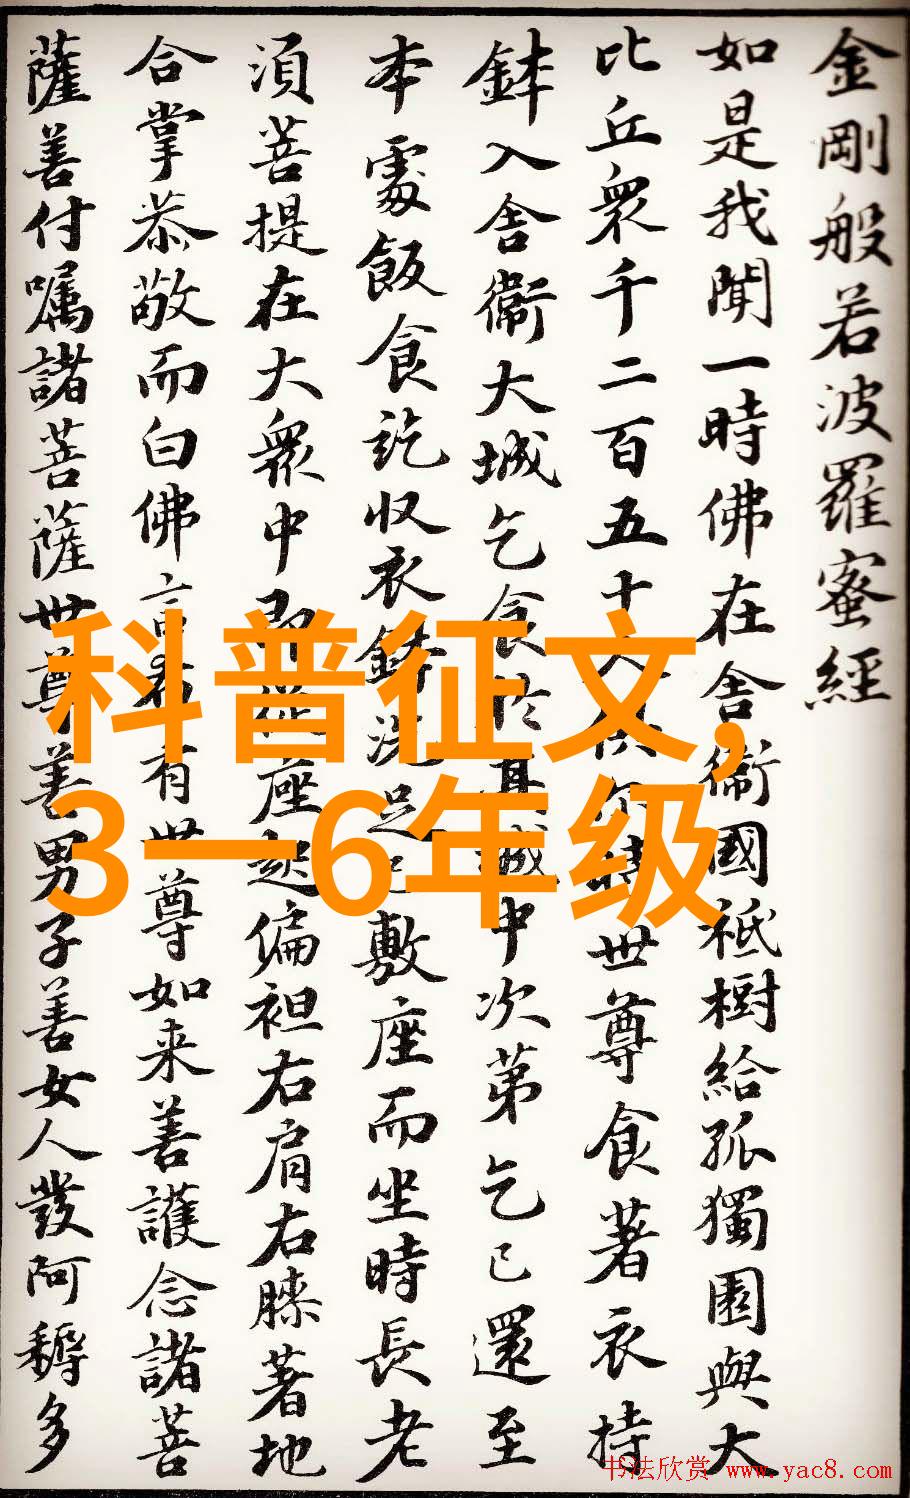 金剛般若波羅蜜經
如是我聞一時佛在舍衞國祇樹給孤獨園與大
比丘衆千二百五十人俱尔時世尊食著衣持
鉢入舍衞大城乞食於其城中次第乞已還至
本處飯食訖收衣鉢洗足已敷座而坐時長老
湏菩提在大衆中即從座起偏袒右肩右膝著地
合掌恭敬而白佛言希有世尊如来善護念諸菩
薩善付嘱諸菩薩世尊善男子善女人發阿耨多
科普征文,
3一6年级
书法欣赏 www.yac8.com